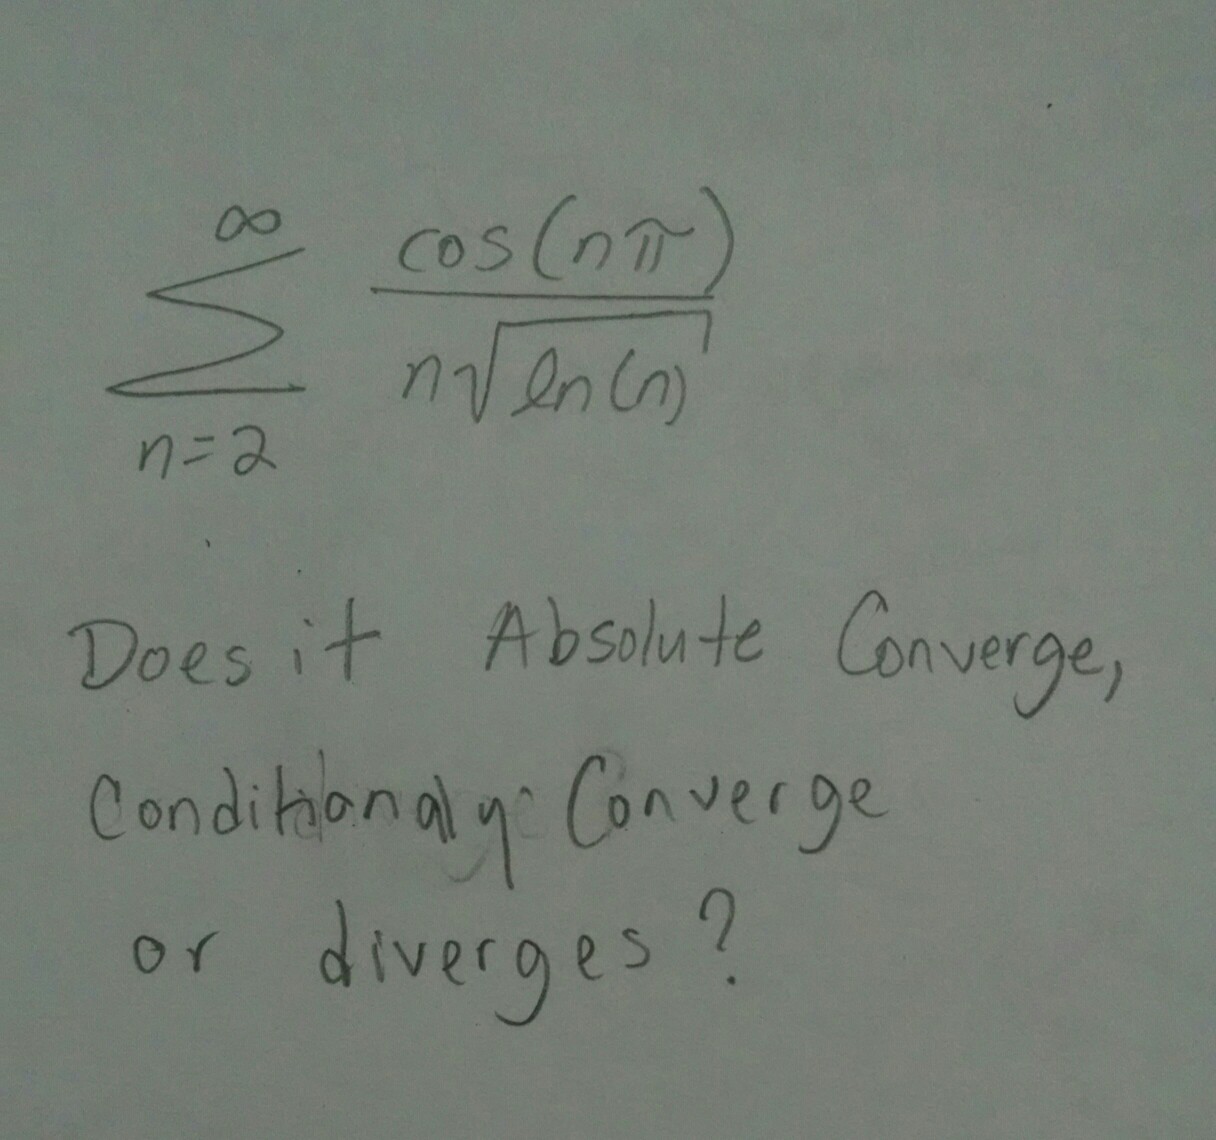 ∞
∑ cos(nπ) / n√ln(n)
n=2
Does it Absolute Converge,
Conditionaly Converge
or diverges?